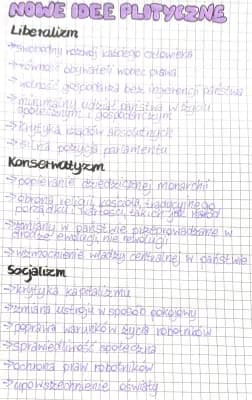 NOWE IDEE PLITYCZNE
Liberalizm
→swobodny rozwój każdego człowieka
→równość obywateli wobec prawa
→wolność gospodarcza bez ingerencji państwa
→minimalny udział państwa w życiu
społecznym i gospodarczym
→krytyka rządów absolutnych
→silna pozycja parlamentu
Konserwatyzm
→popieranie dziedzicznej monarchii
→obrona religii, kościoła, tradycyjnego
porządku i wartości, takich jak naród
→zmiany w państwie przeprowadzane w
drodze ewolucji, nie rewolucji
→wzmocnienie władzy centralnej w państwie
Socjalizm
→krytyka kapitalizmu
→zmiana ustroju w sposób pokojowy
→poprawa warunków życia robotników
→sprawiedliwość społeczna
→ochrona praw robotników
→upowszechnienie oświaty